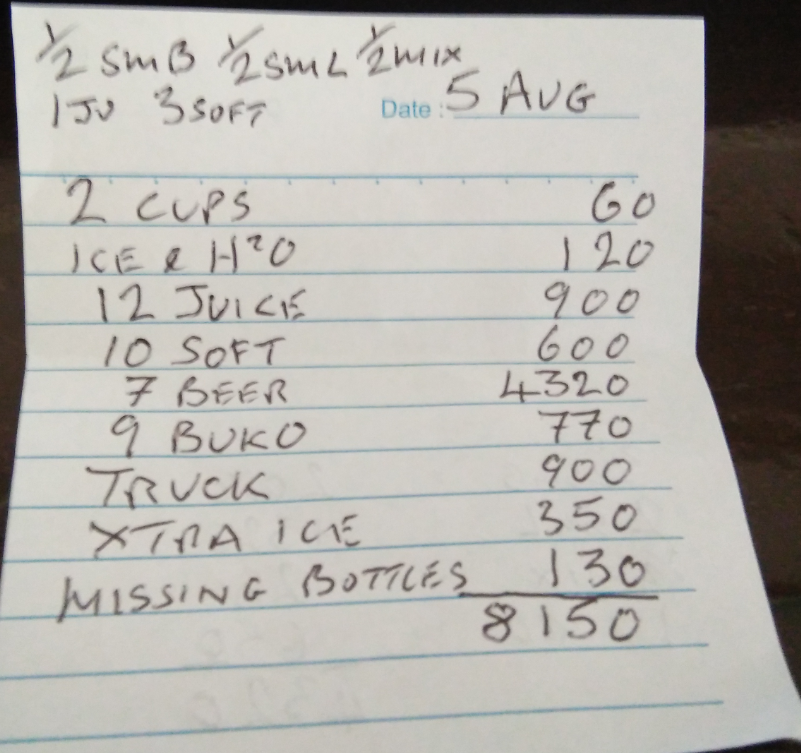 1/2 SMB 1/2 SML 1/2 MIX
1 JU 3 SOFT Date : 5 AUG
2 CUPS 60
ICE & H²O 120
12 JUICE 900
10 SOFT 600
7 BEER 4320
9 BUKO 770
TRUCK 900
XTRA ICE 350
MISSING BOTTLES 130
8150